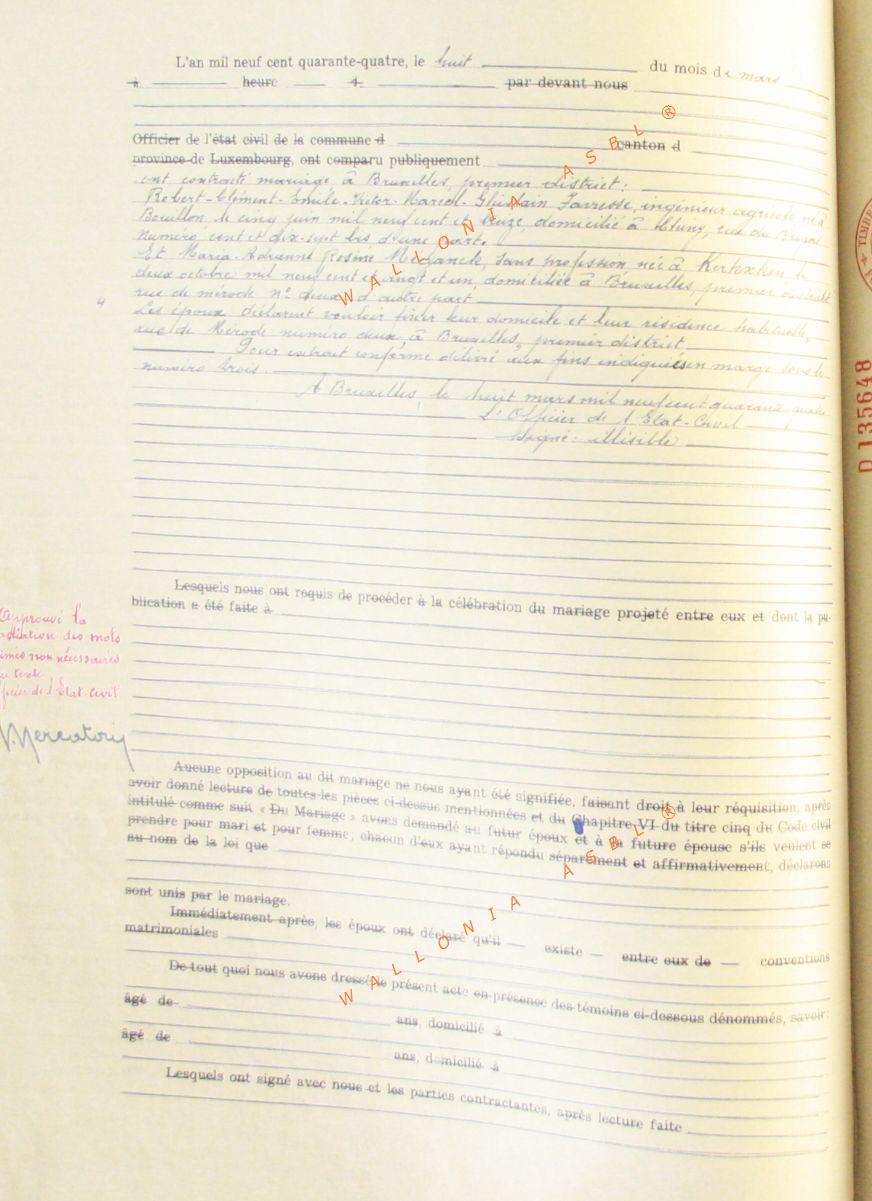 L'an mil neuf cent quarante-quatre, le huit du mois de mars
à heure par devant nous
Officier de l'état civil de la commune d canton d
province de Luxembourg, ont comparu publiquement
ont contracté mariage à Bruxelles, premier district:
Robert-Clément-Emile-Victor-Marcel-Ghislain ingénieur agricole né à
Bouillon le cinq juin mil neuf cent et domicilié à rue du
numéro cent et dix-sept bis d'une part.
Et Maria-Adrienne Rosine sans profession née à le
deux octobre mil neuf cent et vingt et un, domiciliée à Bruxelles, premier district
rue de mérode n° deux d'autre part
4
Les époux déclarent vouloir fixer leur domicile et leur résidence habituelle,
rue de Mérode numéro deux à Bruxelles, premier district
Pour extrait conforme délivré aux fins indiquées en marge sous le
numéro trois.
A Bruxelles le huit mars mil neuf cent quarante quatre
L'Officier de l'Etat-Civil
Signé: illisible
Lesquels nous ont requis de procéder à la célébration du mariage projeté entre eux et dont la pu-
blication a été faite à
Approuvé la
des mots
non nécessaires
au texte
de l'Etat-Civil
Aucune opposition au dit mariage ne nous ayant été signifiée, faisant droit à leur réquisition, après
avoir donné lecture de toutes les pièces ci-dessus mentionnées et du Chapitre VI du titre cinq du Code civil
intitulé comme suit « Du Mariage » avons demandé au futur époux et à la future épouse s'ils veulent se
prendre pour mari et pour femme; chacun d'eux ayant répondu séparément et affirmativement, déclarons
au nom de la loi que
sont unis par le mariage.
Immédiatement après, les époux ont déclaré qu'il existe entre eux de conventions
matrimoniales
De tout quoi nous avons dressé le présent acte en présence des témoins ci-dessous dénommés, savoir:
âgé de ans, domicilié à
âgé de ans, domicilié à
Lesquels ont signé avec nous et les parties contractantes, après lecture faite
WALLONIA ASBL ®
WALLONIA ASBL ®
TIMBRE
D 135648